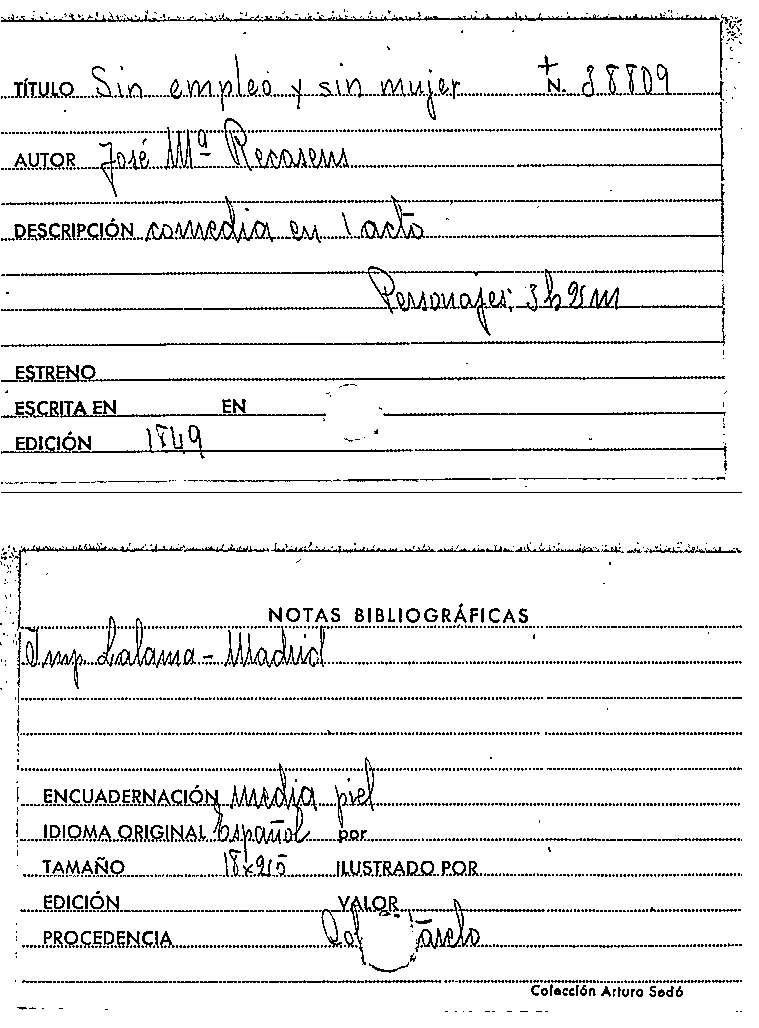 TÍTULO Sin empleo y sin mujer N. 38809
AUTOR José Mª Recasens
DESCRIPCIÓN comedia en 1 acto
Personajes: 3 h 2 m
ESTRENO
ESCRITA EN EN
EDICIÓN 1849
NOTAS BIBLIOGRÁFICAS
Imp Lalama - Madrid
ENCUADERNACIÓN media piel
IDIOMA ORIGINAL Español por
TAMAÑO ILUSTRADO POR
EDICIÓN VALOR
PROCEDENCIA
Colección Arturo Sedó